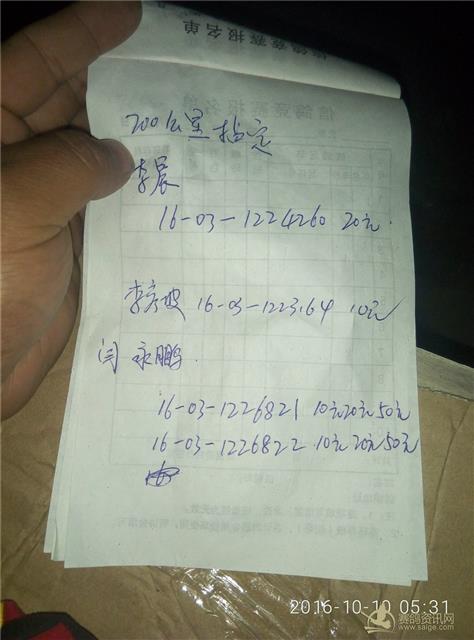 信鸽竞赛报名单
200公里指定
李晨
16-03-1224260 20元.
李彦波 16-03-1223164 10元
闫永鹏.
16-03-1226821 10元20元50元
16-03-1226822 10元20元50元
2016-10-10 05:31
赛鸽资讯网
www.saige.com